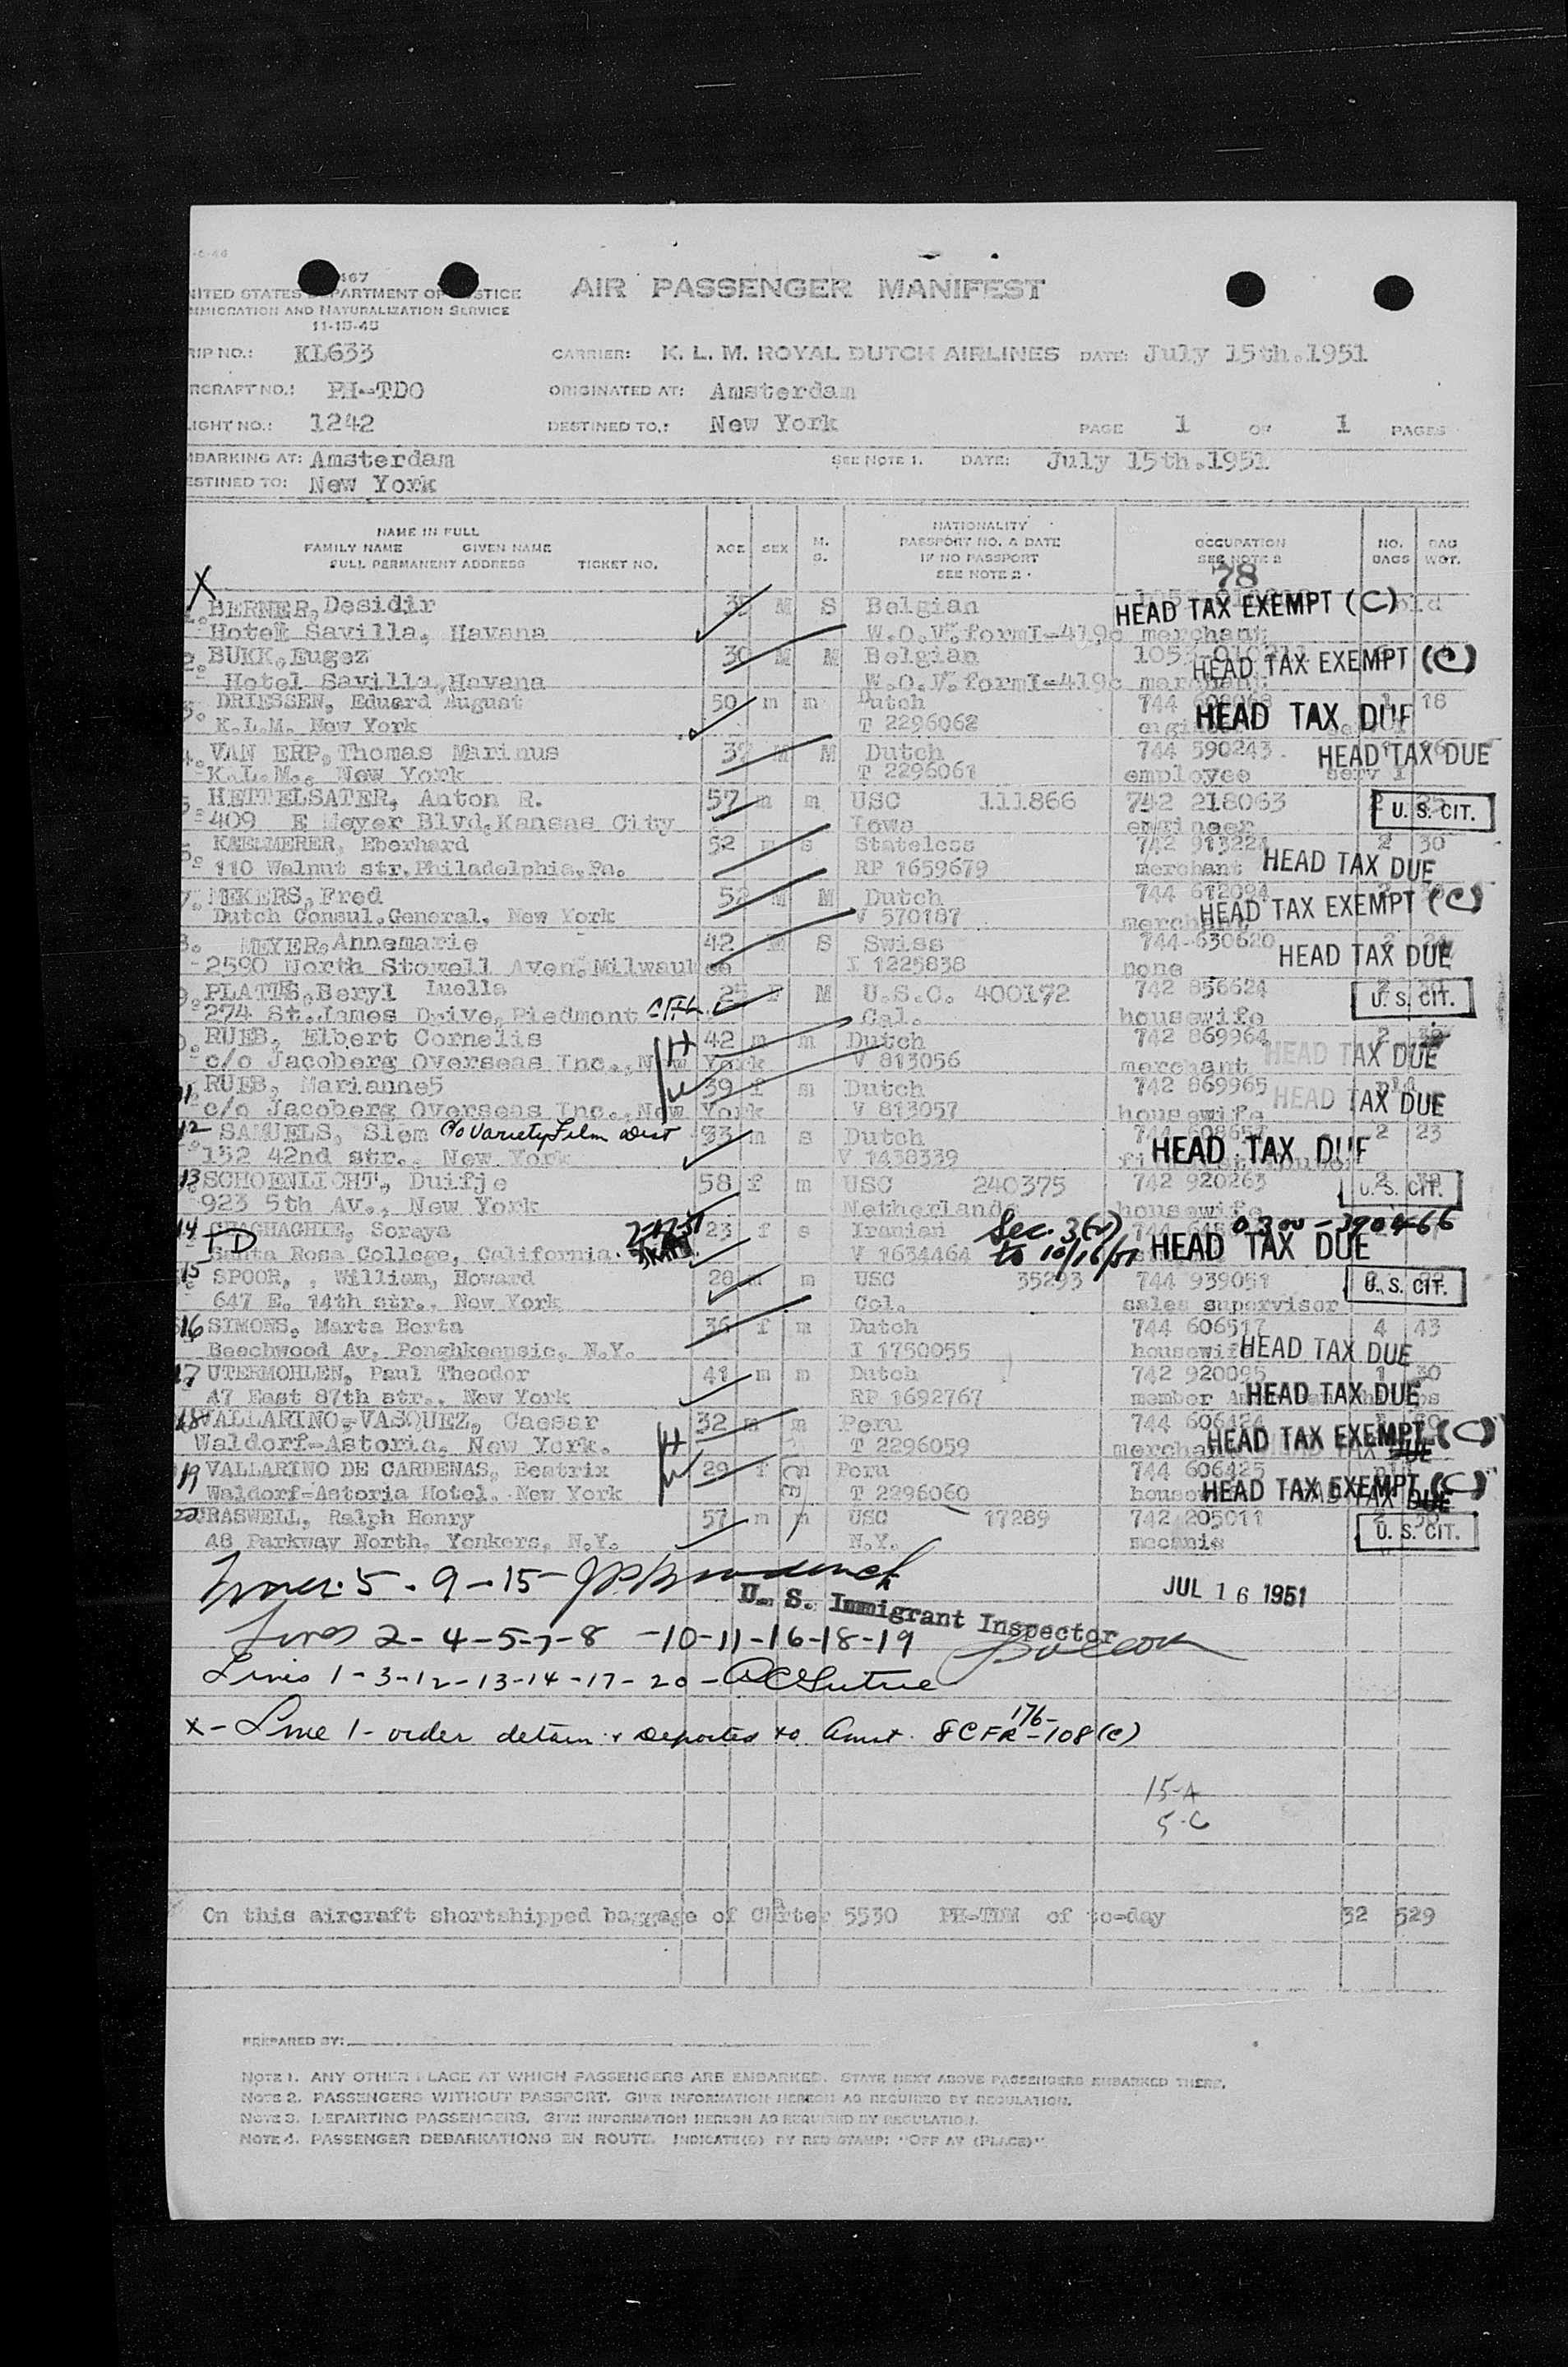 -6-46
467
NITED STATES DEPARTMENT OF JUSTICE
MMIGRATION AND NATURALIZATION SERVICE
11-15-45
AIR PASSENGER MANIFEST
RIP NO.: KL633 CARRIER: K. L. M. ROYAL DUTCH AIRLINES DATE: July 15th.1951
RCRAFT NO.: PH-TDO ORIGINATED AT: Amsterdam
LIGHT NO.: 1242 DESTINED TO.: New York PAGE 1 OF 1 PAGES
MBARKING AT: Amsterdam SEE NOTE 1. DATE: July 15th.1951
ESTINED TO: New York
NAME IN FULL
FAMILY NAME GIVEN NAME
FULL PERMANENT ADDRESS TICKET NO.
AGE SEX M. S.
NATIONALITY
PASSPORT NO. & DATE
IF NO PASSPORT
SEE NOTE 2
OCCUPATION
SEE NOTE 2
NO. BAGS BAG WGT.
78
X
BERNER, Desidir M S Belgian HEAD TAX EXEMPT (C)
Hotel Savilla, Havana W.O.V. formI-419c merchant
2. BUKK, Eugez 30 M M Belgian HEAD TAX EXEMPT (C)
Hotel Savilla, Havana W.O.V. formI-419c
3. DRIESSEN, Eduard August 50 m m Dutch 744 1 18
K.L.M. New York T 2296062 HEAD TAX DUE
4. VAN ERP, Thomas Marinus M M Dutch 744 590243 HEAD TAX DUE
K.L.M., New York T 2296061 employee
HEITELSATER, Anton R. 57 m m USC 111866 742 218063 U. S. CIT.
409 E Meyer Blvd. Kansas City Iowa engineer
KAEMMERER, Eberhard 52 m s Stateless 742 913224 2 30
110 Walnut str. Philadelphia, Pa. RP 1659679 merchant HEAD TAX DUE
7. MEKERS, Fred 52 M M Dutch 744 612094
Dutch Consul. General, New York V 570187 merchant HEAD TAX EXEMPT (C)
8. MEYER, Annemarie 42 S Swiss 744-630620 HEAD TAX DUE
2590 North Stowell Aven. Milwaukee I 1225838 none
9. PLATTS, Beryl Luella F M U.S.C. 400172 742 856624 U. S. CIT.
274 St. James Drive, Piedmont Cal. Cal. housewife
RUEB, Elbert Cornelis 42 m m Dutch 742 869964 2
c/o Jacoberg Overseas Inc., New York V 813056 merchant HEAD TAX DUE
H
W
RUEB, Marianne5 39 f m Dutch 742 869965
c/o Jacoberg Overseas Inc., New York V 813057 housewife HEAD TAX DUE
12 SAMUELS, Slem c/o Variety Film Dist 33 m s Dutch 2 23
152 42nd str., New York V 1438339 HEAD TAX DUE
13 SCHOENLICHT, Duifje 58 f m USC 240375 742 920263 U. S. CIT.
923 5th Av., New York Netherlands housewife
14 Soraya 23 f s Iranian Sec. 3(2) 0300-390466
TD Santa Rosa College, California. V 1634464 to 10/16/51 HEAD TAX DUE
15 SPOOR, , William, Howard 28 m USC 35293 744 939051 U. S. CIT.
647 E. 14th str., New York Col. sales supervisor
16 SIMONS, Marta Berta 36 f m Dutch 744 606517 4 43
Beechwood Av. Poughkeepsie, N.Y. I 1750055 housewife HEAD TAX DUE
17 UTERMOHLEN, Paul Theodor 41 m m Dutch 742 920095 1 30
47 East 87th str., New York RP 1692767 member HEAD TAX DUE
18 VALLARINO-VASQUEZ, Caesar 32 m m Peru 744 606424
Waldorf-Astoria, New York. T 2296059 HEAD TAX EXEMPT (C)
H
W
19 VALLARINO DE CARDENAS, Beatrix 29 f m Peru 744 606425
Waldorf-Astoria Hotel, New York T 2296060 HEAD TAX EXEMPT (C)
20 CRASWELL, Ralph Henry 57 m m USC 17289 742 205011
48 Parkway North, Yonkers, N.Y. N.Y. mecanic U. S. CIT.
5 - 9 - 15
U. S. Immigrant Inspector
JUL 16 1951
Lines 2-4-5-7-8 -10-11-16-18-19
Lines 1-3-12-13-14-17-20-
x- Line 1- order detain & deported to Amst. 8CFR 176-108(c)
15-A
5-C
On this aircraft shortshipped baggage of Charter 5530 PH-TDM of to-day 32 529
PREPARED BY:
NOTE 1. ANY OTHER PLACE AT WHICH PASSENGERS ARE EMBARKED. STATE NEXT ABOVE PASSENGERS EMBARKED THERE.
NOTE 2. PASSENGERS WITHOUT PASSPORT. GIVE INFORMATION HEREON AS REQUIRED BY REGULATION.
NOTE 3. DEPARTING PASSENGERS. GIVE INFORMATION HEREON AS REQUIRED BY REGULATION.
NOTE 4. PASSENGER DEBARKATIONS EN ROUTE. INDICATE(S) BY RED STAMP: "OFF AT (PLACE)"